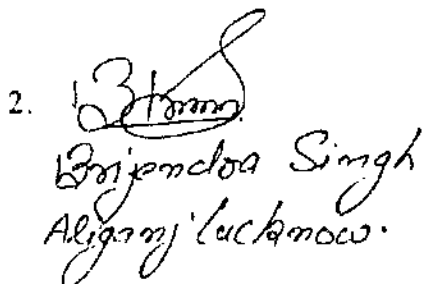 2.
Brijendra Singh
Aliganj Lucknow.